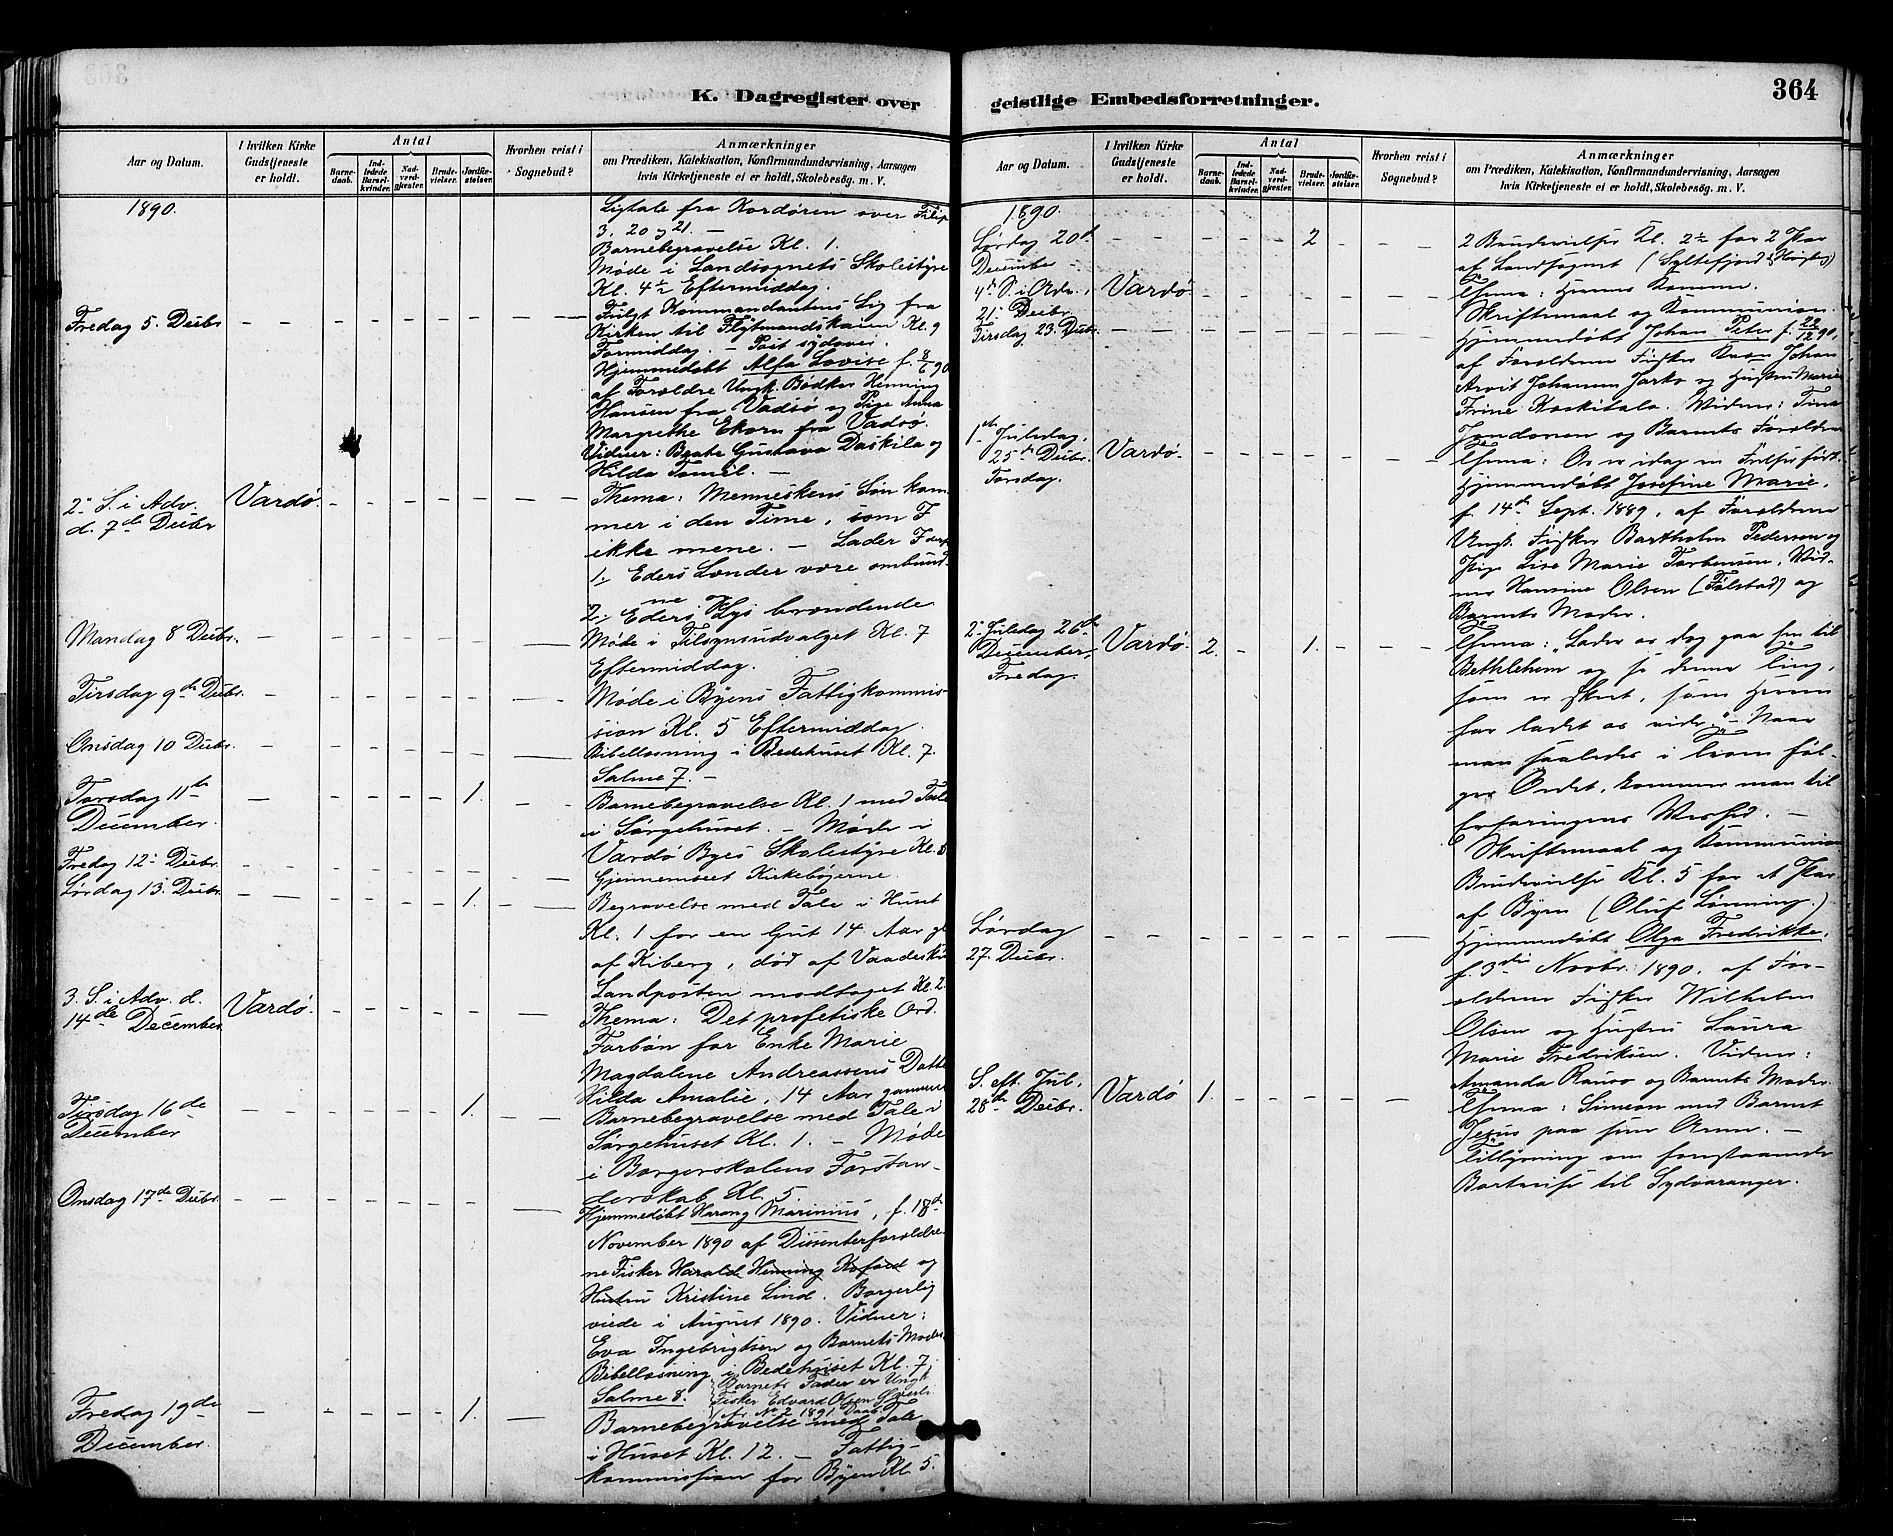 K. Dagregister over
Aar og Datum.
I hvilken Kirke Gudstjeneste er holdt.
Antal
Barnedaab.
Indledede Barselkvinder.
Nadverdgjester.
Brudevielser.
Jordfæstelser.
Hvorhen reist i Sognebud?
Anmærkninger
om Prædiken, Katekisation, Konfirmandundervisning, Aarsagen
hvis Kirketjeneste ei er holdt, Skolebesøg. m. V.
1890.
Ligtale fra Kordøren over Filip
3. 20 og 21. —
Barnebegravelse Kl. 1.
Møde i Landsognets Skolestyre
Kl. 4½ Eftermiddag.
Fredag 5. Decbr
Fulgt Kommandantens Lig fra
Kirken til Flytmandskaien Kl. 9
Formiddag. — Post sydover.
Hjemmedøbt Alfa Lovise f. 8/6 90
af Forældre Ungk. Bødker Henning
Hansen fra Vadsø og Pige Anna
Margrethe Ekorn fra Vadsø.
Vidner: Beate Gustava Daskila og
Hilda Tomil. —
2. S. i Adv. Vardø.
d. 7de Decbr
Thema: Menneskens Søn kom-
mer i den Time, som I
ikke mene. — Lader
1. Eders Lænder være ombund-
ne
2. Eders Lys brændende
Mandag 8 Decbr.
Møde i Tilsynsudvalget Kl. 7
Eftermiddag.
Tirsdag 9de Decbr.
Møde i Byens Fattigkommis-
sion Kl. 5 Eftermiddag.
Onsdag 10 Decbr.
Bibellæsning i Bedehuset Kl. 7.
Salme 7. —
Torsdag 11te 1.
December.
Barnebegravelse Kl. 1 med Tale
i Sørgehuset. — Møde i
Vardø Byes Skolestyre Kl. 5
Fredag 12. Decbr.
Gjennemseet Kirkebøgerne.
Lørdag 13. Decbr. 1.
Begravelse med Tale i Huset
Kl. 1 for en Gut 14 Aar gl.
af Kiberg, død af Vaadeskud
Landposten modtaget Kl. 2.
3. S. i Adv. d. Vardø.
14de December
Thema: Det profetiske Ord.
Forbøn for Enke Marie
Magdalene Andreassens Datter
Hilda Amalie, 14 Aar gammel
Tirsdag 16de 1.
December
Barnebegravelse med Tale i
Sørgehuset Kl. 1. — Møde
i Borgerskolens Forstan-
derskab Kl. 5.
Onsdag 17de Decbr.
Hjemmedøbt Marinius, f. 18de
November 1890 af Dissenterforældre-
ne Fisker Harald Henning Kofoed og
Hustru Kristine Lind. Borgerlig
viede i August 1890. Vidner:
Eva Ingebrigtsen og Barnets Moder.
Bibellæsning i Bedehuset Kl. 7,
Salme 8.
Barnets Fader er Ungk.
Fisker Edvard Olsen
No 2 1891 Daab.
Fredag 19de 1.
December.
Barnebegravelse med Tale
i Huset Kl. 12. — Fattig-
kommission for Byen Kl. 5.
geistlige Embedsforretninger.
364
Aar og Datum.
I hvilken Kirke Gudstjeneste er holdt.
Antal
Barnedaab.
Indledede Barselkvinder.
Nadverdgjester.
Brudevielser.
Jordfæstelser.
Hvorhen reist i Sognebud?
Anmærkninger
om Prædiken, Katekisation, Konfirmandundervisning, Aarsagen
hvis Kirketjeneste ei er holdt, Skolebesøg. m. V.
1890.
Lørdag 20de 2
December
2 Brudevielser Kl. 2½ for 2 Par
af Landsognet (Syltefjord &
4de S. i Adv. Vardø
21. Decbr.
Thema: Herrens Komme.
Skriftemaal og Kommunion.
Tirsdag 23. Decbr.
Hjemmedøbt Johan Peter f. 22/12 90,
af Forældrene Fisker Kvæn Johan
Arvit Johansen Jarko og Hustru Marie
Frine Koskitalo. Vidner: Tina
og Barnets Forældre
1ste Juledag, Vardø.
25de Decbr.
Torsdag.
Thema: Os er idag en Frelser født.
Hjemmedøbt Josefine Marie,
f. 14de Sept. 1889, af Forældrene
Ungk. Fisker Bartholm Pedersen og
Pige Lise Marie Torbensen, Vid-
ner Hansine Olsen (Følstad) og
Barnets Moder.
2. Juledag 26de Vardø. 2. 1.
December,
Fredag.
Thema: „Lader os dog gaa hen til
Bethlehem og se denne Ting,
som er skeet, som Herren
har ladet os vide." — Naar
man saaledes i Troen føl-
ger Ordet, kommer man til
Erfaringens Vished. —
Skriftemaal og Kommunion
Brudevielse Kl. 5 for et Par
af Byen (Oluf Lønning.)
Lørdag
27. Decbr.
Hjemmedøbt Olga Fredrikke,
f. 3die Novbr. 1890, af For-
ældrene Fisker Wilhelm
Olsen og Hustru Laura
Marie Fredriksen. Vidner:
Amanda og Barnets Moder.
S. eft. Jul, Vardø 1.
28de Decbr.
Thema: Simeon med Barnet
Jesus paa sine Arme. —
Tillysning om forestaaende
Bortreise til Sydvaranger.